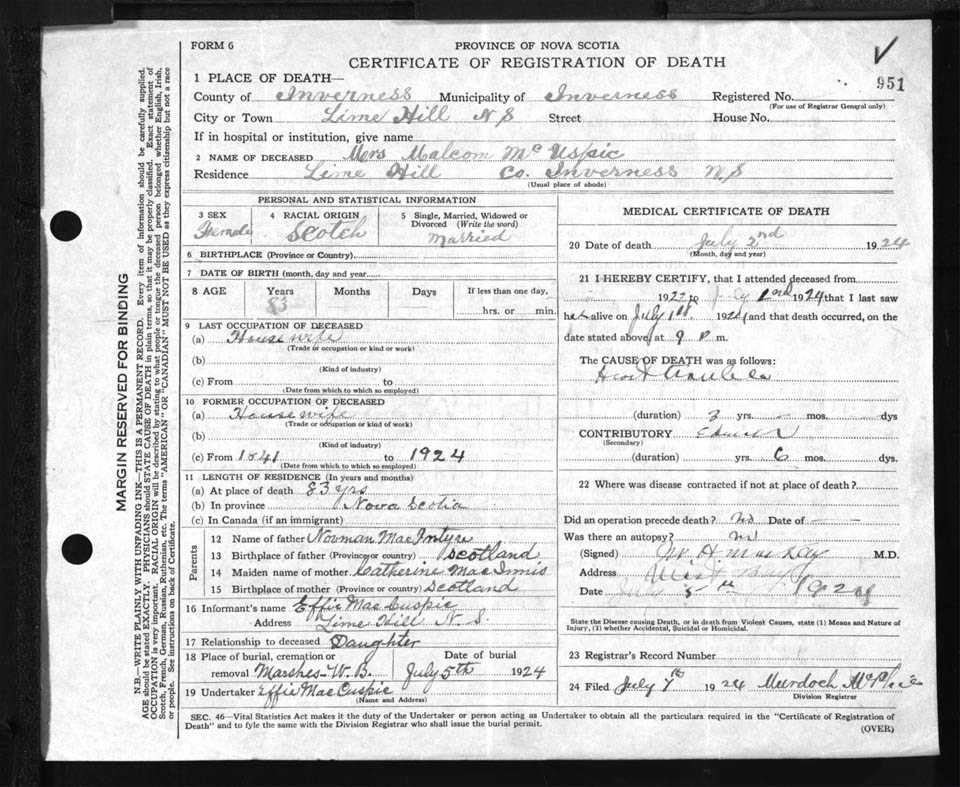 FORM 6
PROVINCE OF NOVA SCOTIA
CERTIFICATE OF REGISTRATION OF DEATH
951
1 PLACE OF DEATH—
County of Inverness Municipality of Inverness Registered No.
(For use of Registrar General only)
City or Town Lime Hill N S Street House No.
If in hospital or institution, give name
2 NAME OF DECEASED Mrs Malcom Mc Uspic
Residence Lime Hill Co. Inverness N S
(Usual place of abode)
PERSONAL AND STATISTICAL INFORMATION
3 SEX 4 RACIAL ORIGIN 5 Single, Married, Widowed or
Divorced (Write the word)
Female Scotch Married
6 BIRTHPLACE (Province or Country)
7 DATE OF BIRTH (month, day and year)
8 AGE Years Months Days If less than one day,
83 hrs. or min.
9 LAST OCCUPATION OF DECEASED
(a) House wife
(Trade or occupation or kind or work)
(b)
(Kind of industry)
(c) From to
(Date from which to which so employed)
10 FORMER OCCUPATION OF DECEASED
(a) House wife
(Trade or occupation or kind of work)
(b)
(Kind of industry)
(c) From 1841 to 1924
(Date from which to which so employed)
11 LENGTH OF RESIDENCE (In years and months)
(a) At place of death 83 yrs
(b) In province Nova Scotia
(c) In Canada (if an immigrant)
Parents
12 Name of father Norman MacIntyre
13 Birthplace of father (Province or country) Scotland
14 Maiden name of mother Catherine MacInnis
15 Birthplace of mother (Province or country) Scotland
16 Informant's name Effie MacCuspic
Address Lime Hill N. S.
17 Relationship to deceased Daughter
18 Place of burial, cremation or Date of burial
removal Marshes-W.B. July 5th 1924
19 Undertaker Effie MacCuspic
(Name and Address)
MEDICAL CERTIFICATE OF DEATH
20 Date of death July 2nd 1924
(Month, day and year)
21 I HEREBY CERTIFY, that I attended deceased from
1922 to July 1924 that I last saw
her alive on July 1st 1924 and that death occurred, on the
date stated above, at 9 p m.
The CAUSE OF DEATH was as follows:
Heart trouble
(duration) yrs. mos. dys
CONTRIBUTORY
(Secondary)
(duration) yrs. 6 dys.
22 Where was disease contracted if not at place of death?
Did an operation precede death? no Date of
Was there an autopsy? no
(Signed) M.D.
Address West Bay
Date 5th 1924
State the Disease causing Death, or in death from Violent Causes, state (1) Means and Nature of
Injury, (2) whether Accidental, Suicidal or Homicidal.
23 Registrar's Record Number
24 Filed July 7th 1924 Murdoch
Division Registrar
SEC. 46—Vital Statistics Act makes it the duty of the Undertaker or person acting as Undertaker to obtain all the particulars required in the "Certificate of Registration of
Death" and to fyle the same with the Division Registrar who shall issue the burial permit.
(OVER)
MARGIN RESERVED FOR BINDING
N.B.—WRITE PLAINLY WITH UNFADING INK—THIS IS A PERMANENT RECORD. Every item of information should be carefully supplied.
AGE should be stated EXACTLY. PHYSICIANS should STATE CAUSE OF DEATH in plain terms, so that it may be properly classified. Exact statement of
OCCUPATION is very important. RACIAL ORIGIN will be described by stating to what people or tongue the deceased person belonged whether English, Irish,
Scotch, French, German, Russian, Ruthenian, etc. The terms "AMERICAN" OR "CANADIAN" MUST NOT BE USED as they express citizenship but not a race
or people. See instructions on back of Certificate.